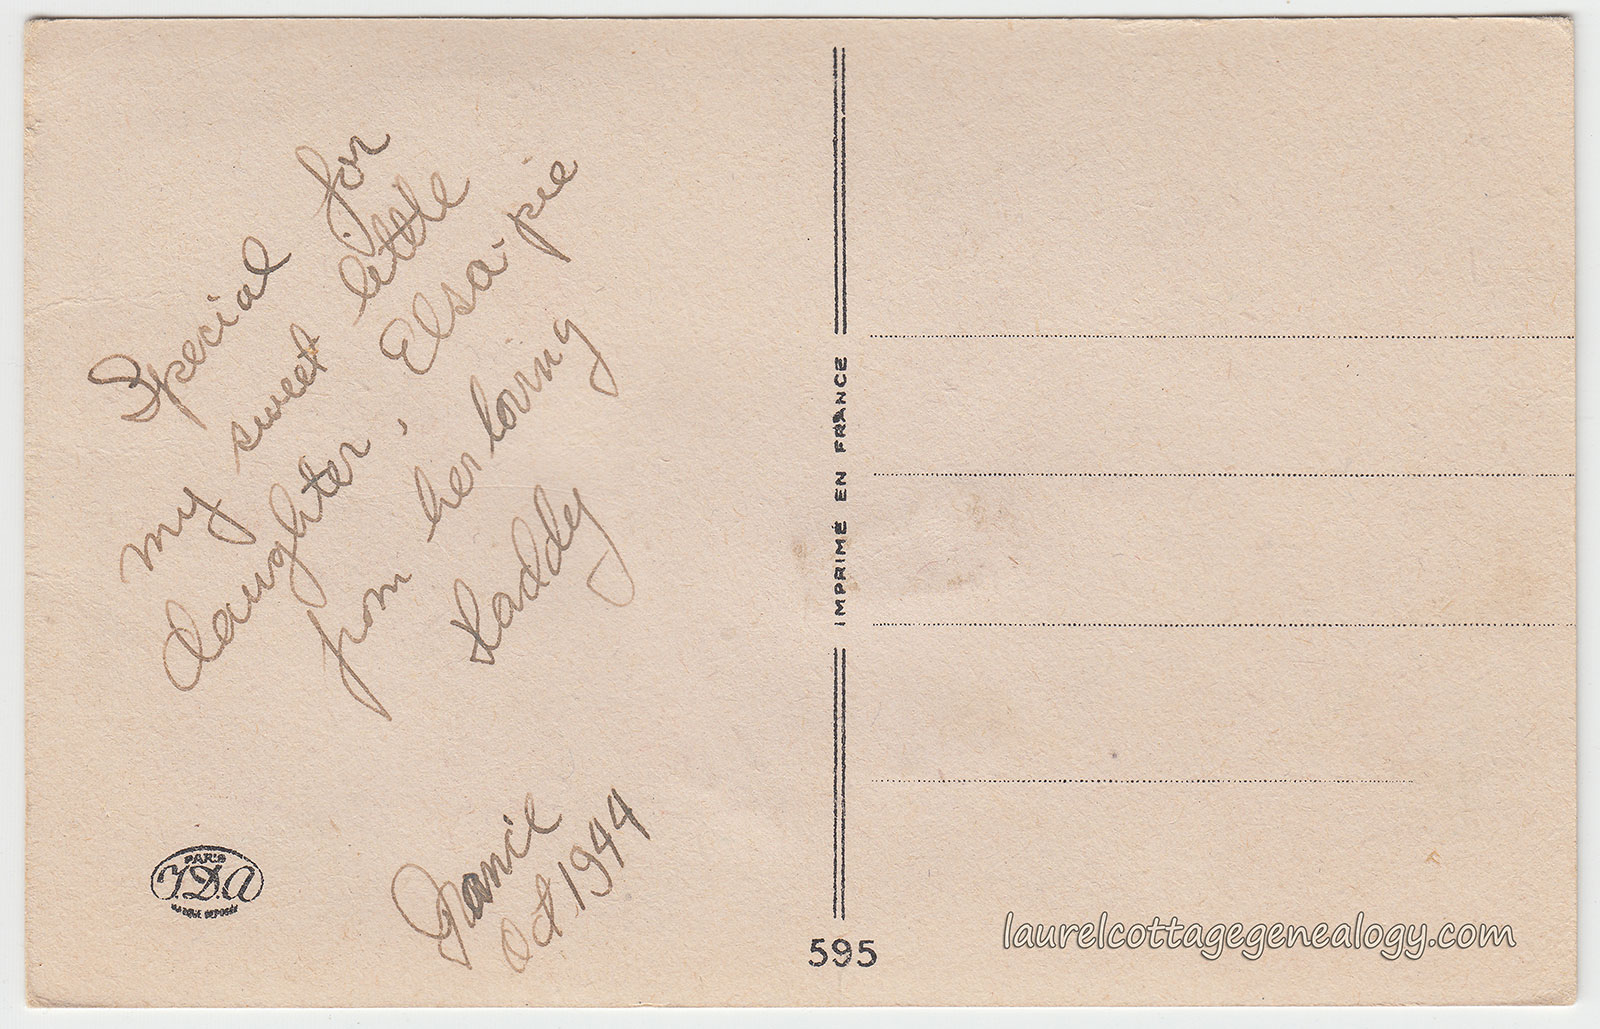 Special for
my sweet little
daughter, Elsa-pie
from her loving
Daddy
France
Oct 1944
PARIS
I.D.A
MARQUE DEPOSÉE
IMPRIMÉ EN FRANCE
595
laurelcottagegenealogy.com